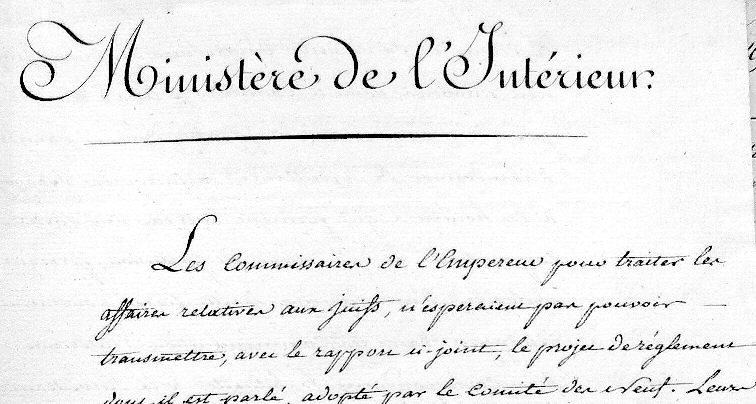 Ministère de l'Intérieur.
Les Commissaires de l'Empereur pour traiter les
affaires relatives aux juifs, n'esperaient pas pouvoir
transmettre, avec le rapport ci-joint, le projet de réglement
dont il est parlé, adopté par le comité des neuf. Leurs